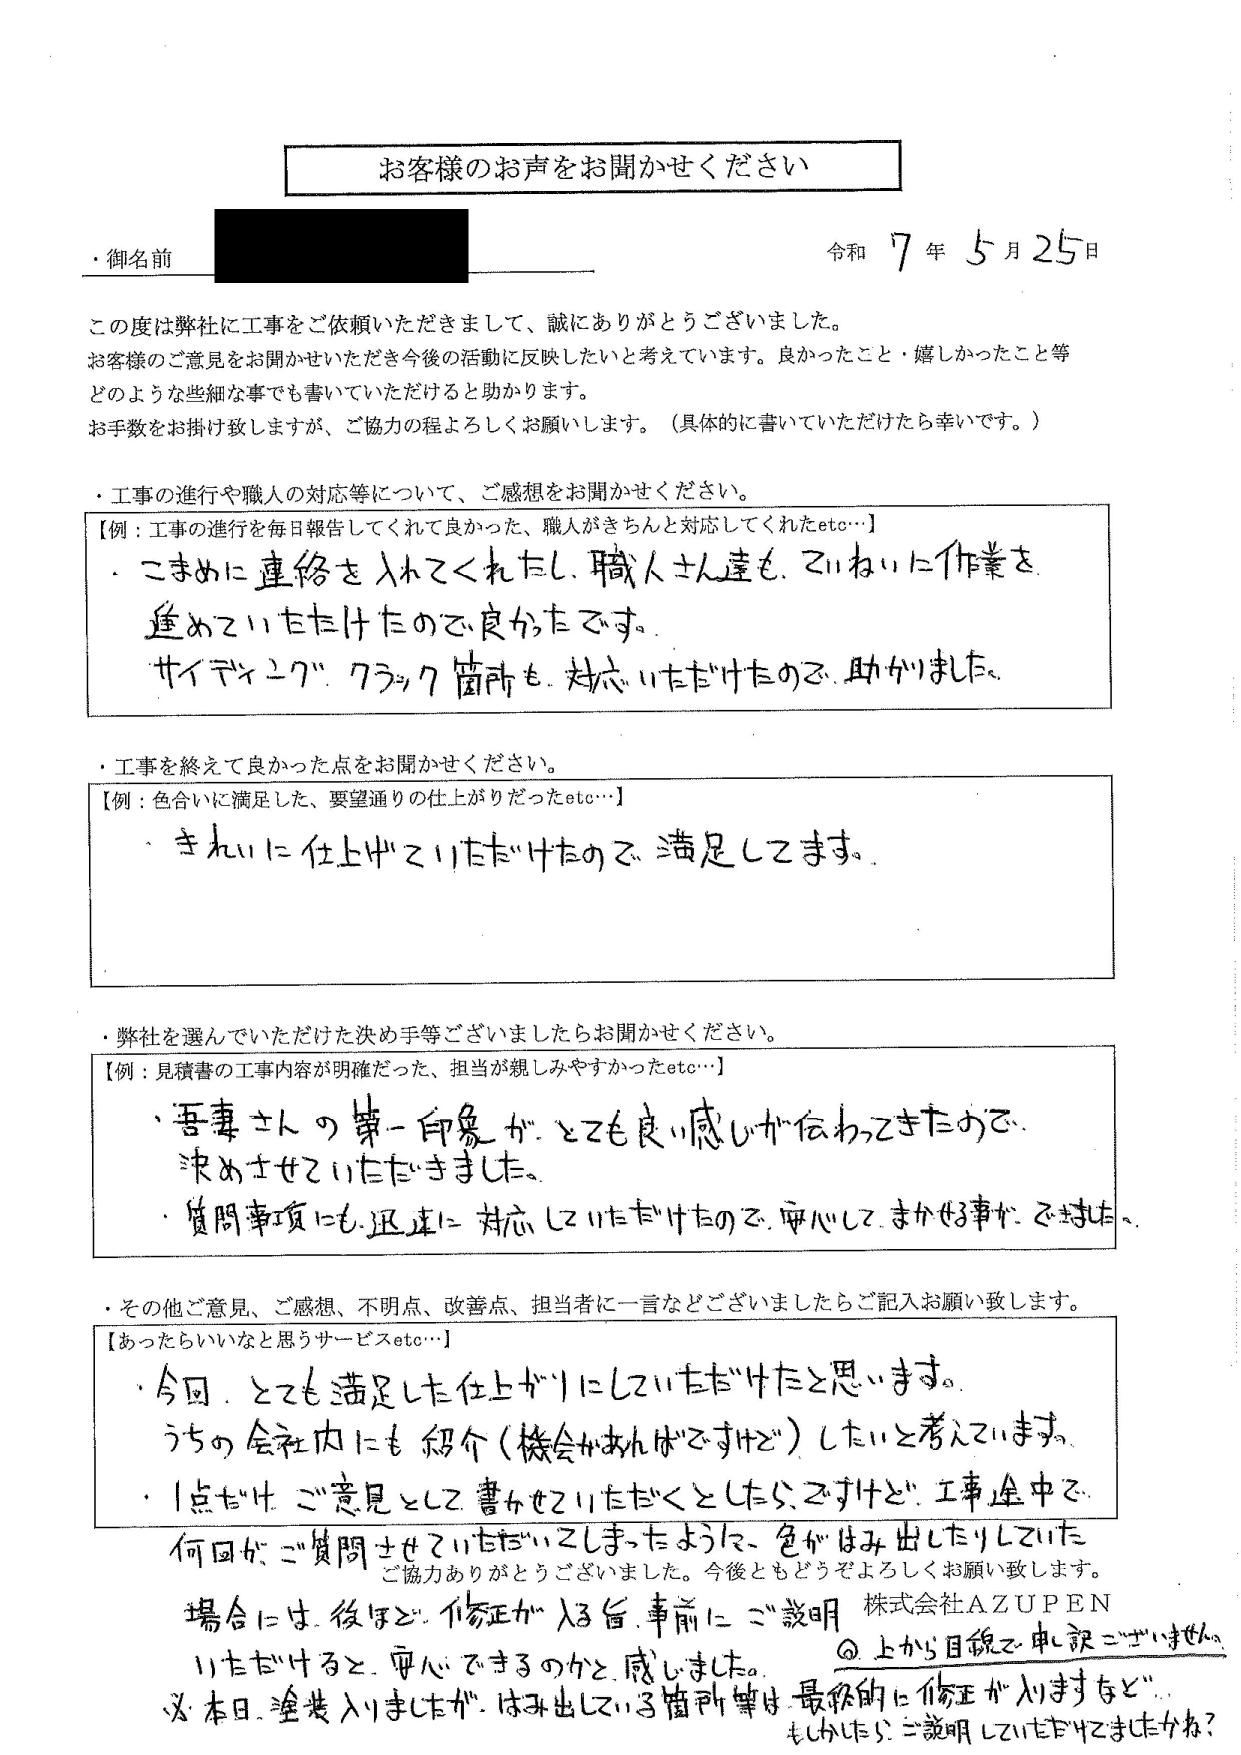 お客様のお声をお聞かせください
・御名前
令和 7 年 5 月 25 日
この度は弊社に工事をご依頼いただきまして、誠にありがとうございました。
お客様のご意見をお聞かせいただき今後の活動に反映したいと考えています。良かったこと・嬉しかったこと等
どのような些細な事でも書いていただけると助かります。
お手数をお掛け致しますが、ご協力の程よろしくお願いします。（具体的に書いていただけたら幸いです。）
・工事の進行や職人の対応等について、ご感想をお聞かせください。
【例：工事の進行を毎日報告してくれて良かった、職人がきちんと対応してくれたetc…】
・こまめに連絡を入れてくれたし、職人さん達も、ていねいに作業を
進めていただけたので、良かったです。
サイディング クラック箇所も、対応いただけたので、助かりました。
・工事を終えて良かった点をお聞かせください。
【例：色合いに満足した、要望通りの仕上がりだったetc…】
・きれいに仕上げていただけたので、満足してます。
・弊社を選んでいただけた決め手等ございましたらお聞かせください。
【例：見積書の工事内容が明確だった、担当が親しみやすかったetc…】
・吾妻さんの第一印象が、とても良い感じが伝わってきたので、
決めさせていただきました。
・質問事項にも、迅速に対応していただけたので、安心して、まかせる事が、できました。
・その他ご意見、ご感想、不明点、改善点、担当者に一言などございましたらご記入お願い致します。
【あったらいいなと思うサービスetc…】
・今回、とても満足した仕上がりにしていただけたと思います。
うちの会社内にも紹介（機会があればですけど）したいと考えています。
・1点だけ、ご意見として書かせていただくとしたら、ですけど、工事途中で、
何回か、ご質問させていただいてしまったように、色がはみ出したりしていた
ご協力ありがとうございました。今後ともどうぞよろしくお願い致します。
場合には、後ほど、修正が入る旨、事前にご説明
株式会社ＡＺＵＰＥＮ
いただけると、安心できるのかと、感じました。
◎ 上から目線で申し訳ございません。
※本日、塗装入りましたが、はみ出している箇所等は、最終的に修正が入りますなど、
もしかしたら、ご説明していただけてましたかね？